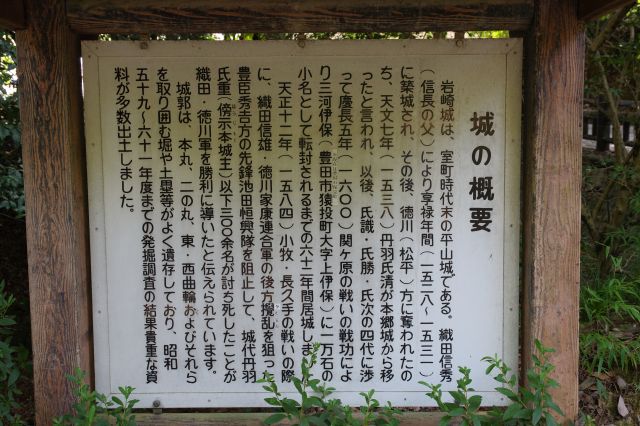 城の概要
岩崎城は、室町時代末の平山城である。織田信秀
(信長の父)により享禄年間(一五二八~一五三一)
に築城され、その後、徳川(松平)方に奪われたの
ち、天文七年(一五三八)丹羽氏清が本郷城から移
ったと言われ、以後、氏識・氏勝・氏次の四代に渉
って慶長五年(一六〇〇)関ヶ原の戦いの戦功によ
り三河伊保(豊田市猿投町大字上伊保)に一万石の
小名として転封されるまでの六十二年間居城しま
天正十二年(一五八四)小牧・長久手の戦いの際
に、織田信雄・徳川家康連合軍の後方攪乱を狙った
豊臣秀吉方の先鋒池田恒興隊を阻止して、城代丹羽
氏重(傍示本城主)以下三〇〇余名が討ち死したことが
織田・徳川軍を勝利に導いたと伝えられています。
城郭は、本丸、二の丸、東・西曲輪およびそれら
を取り囲む堀や土塁等がよく遺存しており、昭和
五十九~六十一年度までの発掘調査の結果貴重な資
料が多数出土しました。